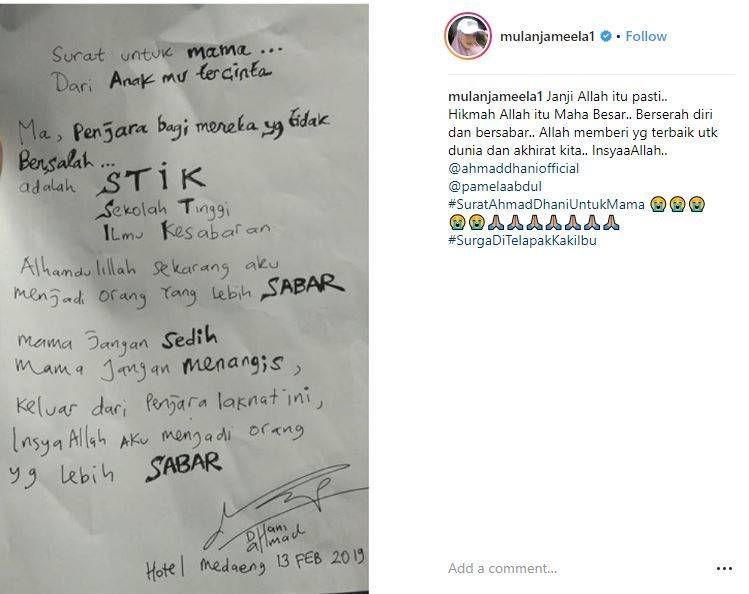 Surat untuk mama ...
Dari Anak mu tercinta
Ma, Penjara bagi mereka yg tidak
Bersalah ...
adalah STIK
Sekolah Tinggi
ILmu Kesabaran
Alhamdulillah sekarang aku
menjadi orang yang lebih SABAR
mama Jangan Sedih
Mama Jangan menangis,
Keluar dari Penjara laknat ini,
InsyaAllah Aku menjadi orang
yg lebih SABAR
DHani
aHmad
Hotel medaeng 13 FEB 2019
mulanjameela1 • Follow
mulanjameela1 Janji Allah itu pasti..
Hikmah Allah itu Maha Besar.. Berserah diri
dan bersabar.. Allah memberi yg terbaik utk
dunia dan akhirat kita.. InsyaaAllah..
@ahmaddhaniofficial
@pamelaabdul
#SuratAhmadDhaniUntukMama 😭😭😭
😭😭🙏🏽🙏🏽🙏🏽🙏🏽🙏🏽🙏🏽🙏🏽
#SurgaDiTelapakKakiIbu
Add a comment...